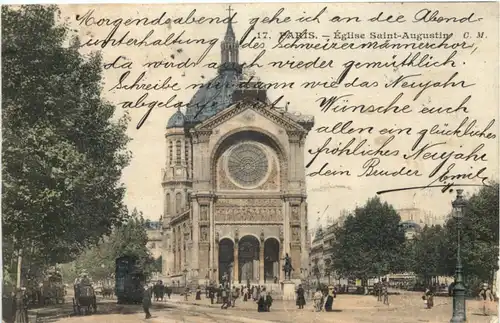 Morgendabend gehe ich an die Abend
unterhaltung des Schweizermännerchor,
17. PARIS. — Église Saint-Augustin C. M.
da wird's auch wieder gemüthlich.
Schreibe mir dann wie das Neujahr
abgelaufen
Wünsche euch
allen ein glückliches
fröhliches Neujahr
dein Bruder Emil